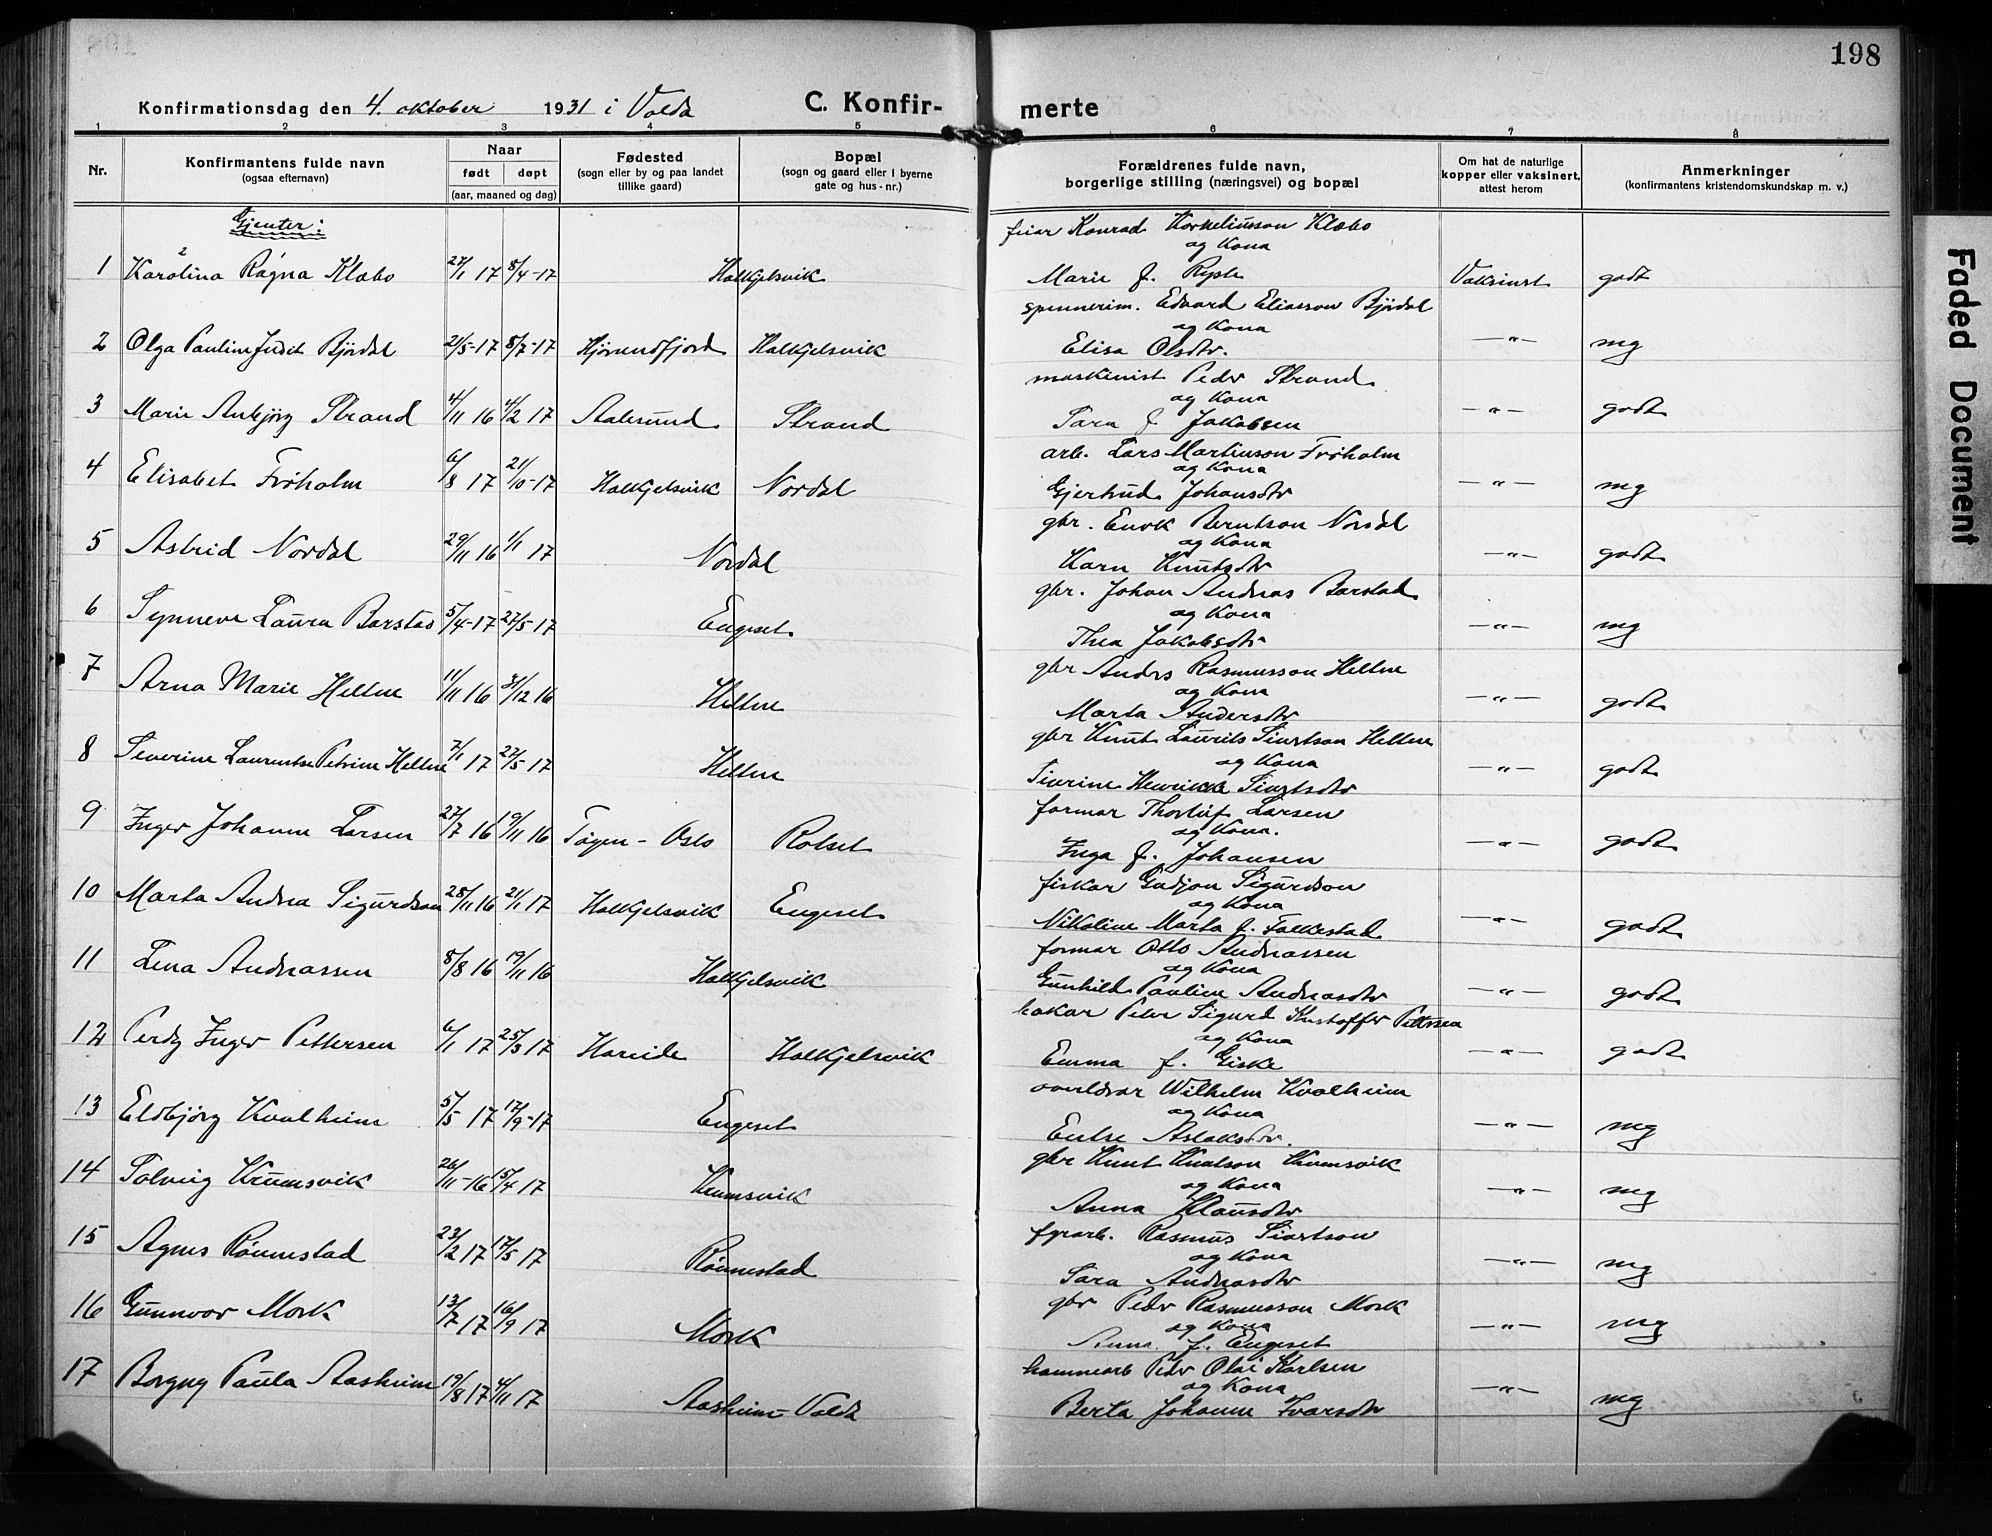 198
Konfirmationsdag den 4. oktober 1931 i Volda C. Konfir- merte
1 2 3 4 5 6 7 8
Nr. Konfirmantens fulde navn (ogsaa efternavn) Naar født døpt (aar, maaned og dag) Fødested (sogn eller by og paa landet tillike gaard) Bopæl (sogn og gaard eller i byerne gate og hus-nr.) Forældrenes fulde navn, borgerlige stilling (næringsvei) og bopæl Om hat de naturlige kopper eller vaksinert, attest herom Anmerkninger (konfirmantens kristendomskundskap m. v.)
Gjenter:
feiar Konrad Korneliusson Klæbo
og Kona
1 Karolina Ragna Klæbo 27/1 17 5/4-17 Halkjelsvik Marie f. Vaksinert godt
Edvard Eliasson Bjørdal
og Kona
2 Olga Pauline Judit Bjørdal 21/5-17 8/7-17 Hjørundfjord Halkjelsvik Elisa Olsdtr. —"— mg
maskinist Peder Strand
og Kona
3 Marie Anbjørg Strand 4/11 16 4/2 17 Aalesund Strand Sara f Jakobsen —"— godt
arb. Lars Martinson Frøholm
og Kona
4 Elisabet Frøholm 6/8 17 21/10-17 Halkjelsvik Nordal Gjertrud Johansdtr —"— mg
gbr. Berntson Nordal
og Kona
5 Astrid Nordal 29/11 16 1/1 17 Nordal Karn Knutsdtr —"— godt
gbr. Johan Andreas Barstad
og Kona
6 Synneve Laura Barstad 5/4-17 27/5-17 Engeset Thea Jakobsdtr —"— mg
gbr Anders Rasmusson Heltne
og Kona
7 Arna Marie Heltne 11/11 16 31/12 16 Heltne Marta Andersdtr —"— godt
gbr Knut Laurits Sivertson Heltne
og Kona
8 Severine Laurentse Petrine Heltne 7/1 17 27/5 17 Heltne Sivrine Henrikke Sivertsdtr —"— godt
formar Thorleif Larsen
og Kona.
9 Inger Johanne Larsen 27/7 16 19/11 16 Tøyen - Oslo Rotset Inga f. Johansen —"— godt
fiskar Gudjon Sigurdson
og Kona
10 Marta Andrea Sigurdson 28/11 16 21/1 17 Halkjelsvik Engeset Nikoline Marta f. Falkestad —"— godt
formar Otto Andreassen
og Kona
11 Lena Andreassen 8/8 16 19/11 16 Halkjelsvik Gunhild Pauline Andreasdtr —"— godt
bakar Peter Sigurd Kristoffer Pettersen
og Kona
12 Perdy Inger Pettersen 6/1 17 25/3 17 Hareide Halkjelsvik Emma f. Giske —"— godt
Wilhelm Kvalheim
og Kona
13 Eldbjørg Kvalheim 5/5 17 17/9-17 Engeset Aslaksdtr. —"— mg
gbr Knut Knutson Krumsvik
og Kona
14 Solveig Krumsvik 26/11-16 15/4 17 Krumsvik Anna Klausdtr —"— mg
Rasmus Sivertson
og Kona
15 Agnes Rønnestad 23/2 17 17/5 17 Rønnestad Sara Andreasdtr —"— mg
gbr Peder Rasmusson Mork
og Kona
16 Gunnvor Mork 13/7 17 16/9 17 Mork Anna f. Engeset —"— mg
Peder Olai Karlsen
og Kona
17 Borgny Paula Aasheim 19/8 17 4/11 17 Aasheim - Volda Berta Johanne Ivarsdtr —"— mg
Faded Document